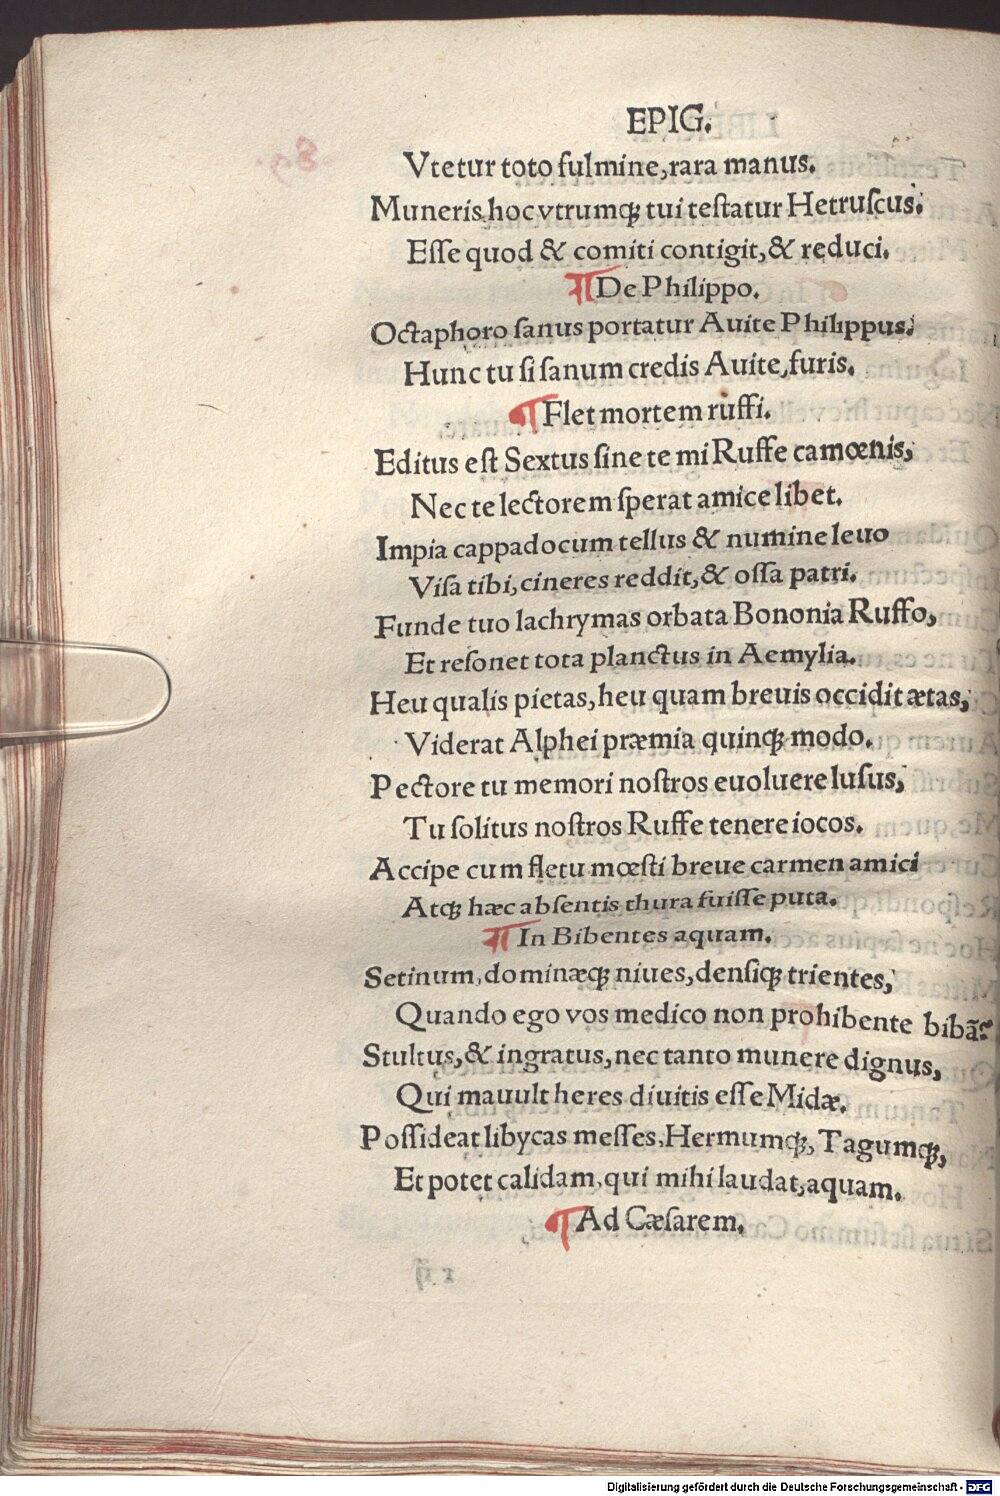 EPIG.
Vtetur toto fulmine, rara manus.
Muneris hoc vtrumqꝫ tui teſtatur Hetruſcus:
Eſſe quod & comiti contigit, & reduci.
¶ De Philippo.
Octaphoro ſanus portatur Auite Philippus:
Hunc tu ſi ſanum credis Auite, furis.
¶ Flet mortem ruffi.
Editus eſt Sextus ſine te mi Ruffe camœnis,
Nec te lectorem ſperat amice libet.
Impia cappadocum tellus & numine leuo
Viſa tibi, cineres reddit, & oſſa patri.
Funde tuo lachrymas orbata Bononia Ruffo,
Et reſonet tota planctus in Aemylia.
Heu qualis pietas, heu quam breuis occidit ætas,
Viderat Alphei præmia quinqꝫ modo.
Pectore tu memori noſtros euoluere luſus,
Tu ſolitus noſtros Ruffe tenere iocos.
Accipe cum fletu mœſti breue carmen amici
Atqꝫ hæc abſentis thura fuiſſe puta.
¶ In Bibentes aquam.
Setinum, dominæqꝫ niues, denſiqꝫ trientes,
Quando ego vos medico non prohibente bibã?
Stultus, & ingratus, nec tanto munere dignus,
Qui mauult heres diuitis eſſe Midæ.
Poſſideat libycas meſſes, Hermumqꝫ, Tagumqꝫ,
Et potet calidam, qui mihi laudat, aquam.
¶ Ad Cæſarem.
Digitalisierung gefördert durch die Deutsche Forschungsgemeinschaft - DFG